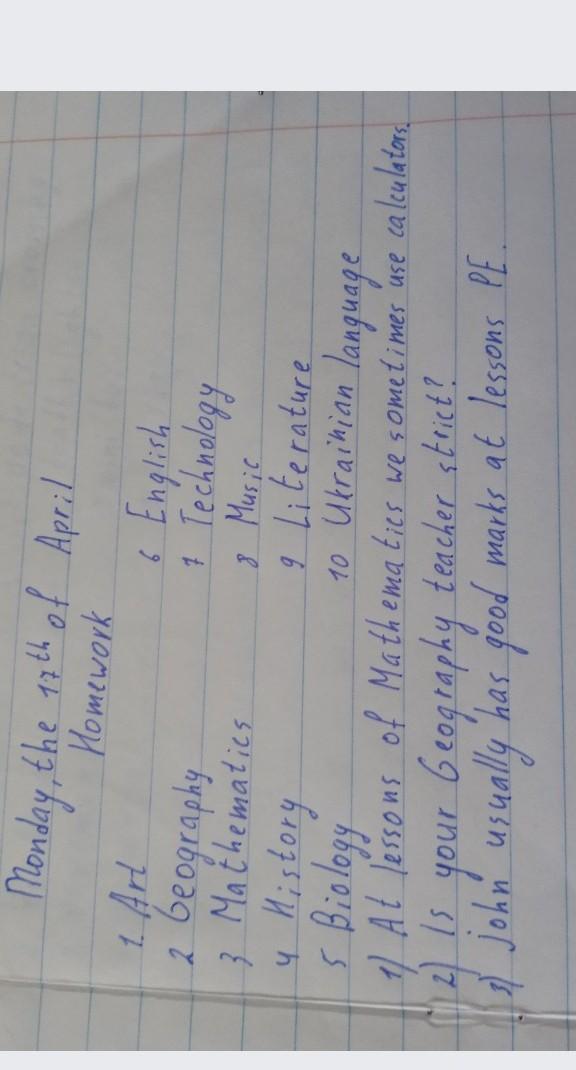 Monday, the 17th of April
Homework
1. Art 6 English
2 Geography 7 Technology
3 Mathematics 8 Music
4 History 9 Literature
5 Biology 10 Ukrainian language
1) At lessons of Mathematics we sometimes use calculators.
2) Is your Geography teacher strict?
3) john usually has good marks at lessons PE.